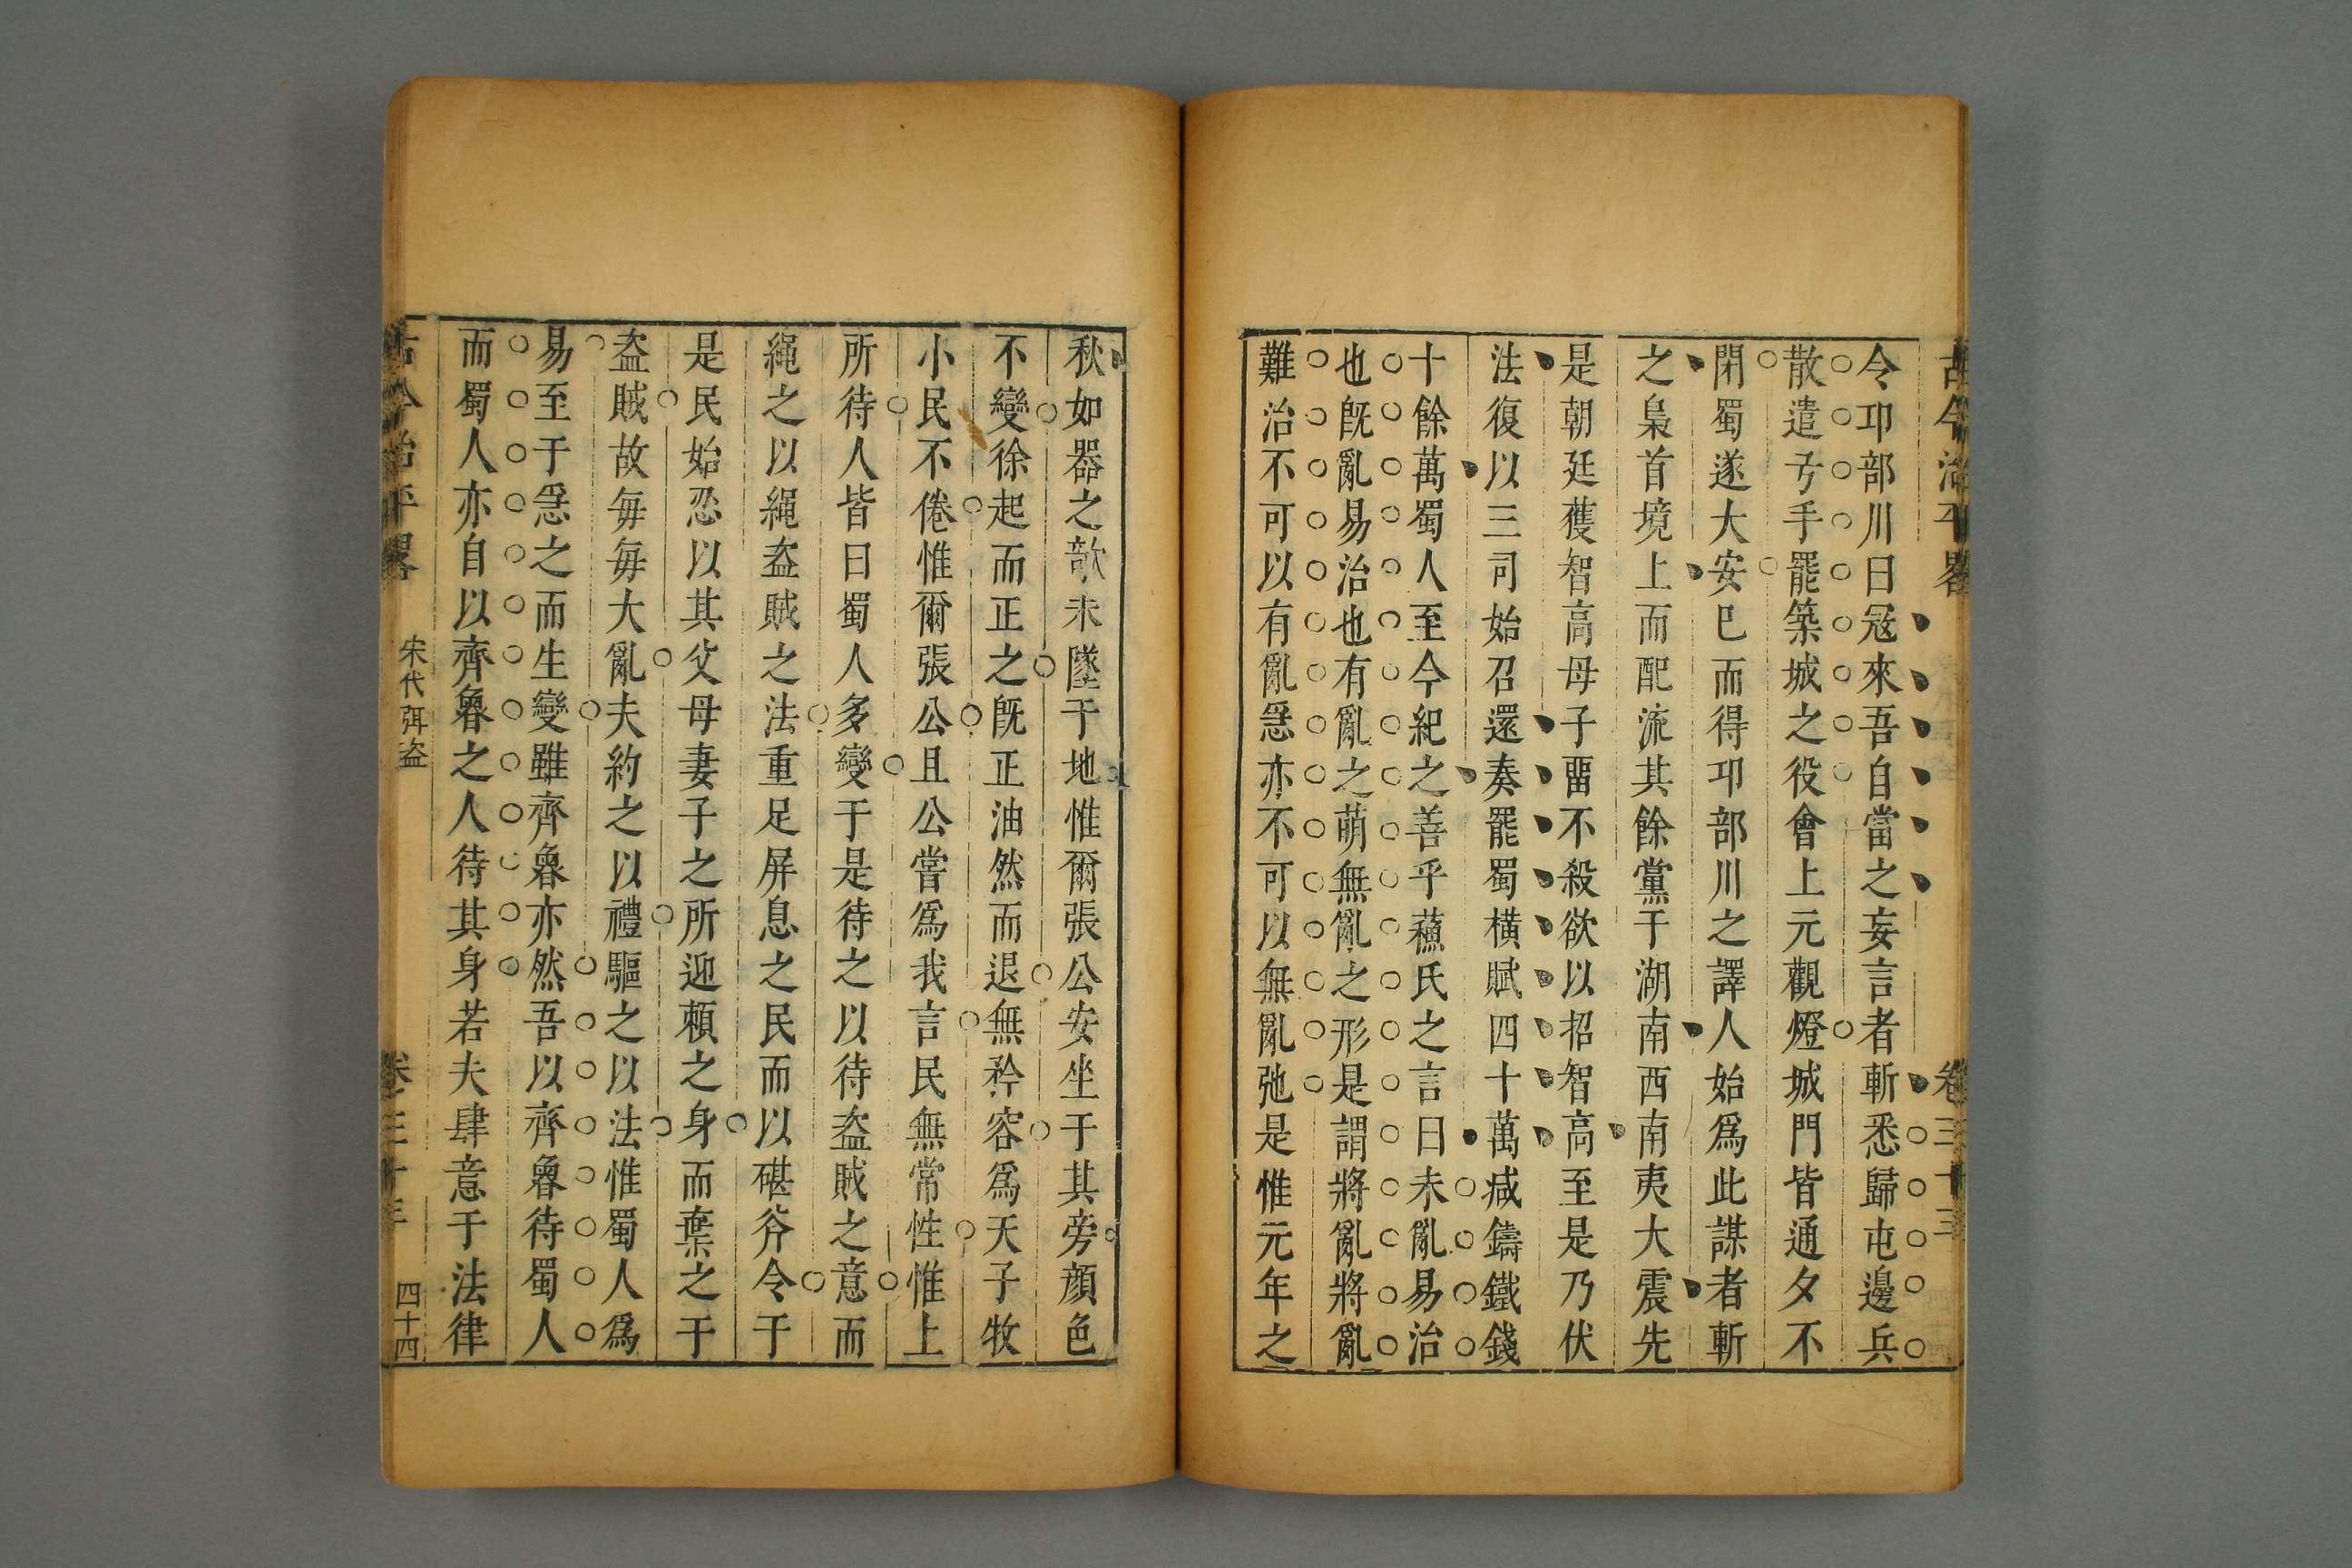 古今治平畧 卷三十三
令邛部川曰寇來吾自當之妄言者斬悉歸屯邊兵
散遣弓手罷築城之役會上元觀燈城門皆通夕不
閉蜀遂大安已而得邛部川之譯人始爲此謀者斬
之梟首境上而配流其餘黨于湖南西南夷大震先
是朝廷獲智高母子畱不殺欲以招智高至是乃伏
法復以三司始召還奏罷蜀橫賦四十萬減鑄鐵錢
十餘萬蜀人至今紀之善乎蘇氏之言曰未亂易治
也旣亂易治也有亂之萌無亂之形是謂將亂將亂
難治不可以有亂急亦不可以無亂弛是惟元年之
秋如器之欹未墜于地惟爾張公安坐于其旁顔色
不變徐起而正之旣正油然而退無矜容爲天子牧
小民不倦惟爾張公且公嘗爲我言民無常性惟上
所待人皆曰蜀人多變于是待之以待盗賊之意而
繩之以繩盗賊之法重足屏息之民而以碪斧令于
是民始忍以其父母妻子之所迎賴之身而棄之于
盗賊故每每大亂夫約之以禮驅之以法惟蜀人爲
易至于急之而生變雖齊魯亦然吾以齊魯待蜀人
而蜀人亦自以齊魯之人待其身若夫肆意于法律
古今治平畧 宋代弭盗 卷三十三 四十四